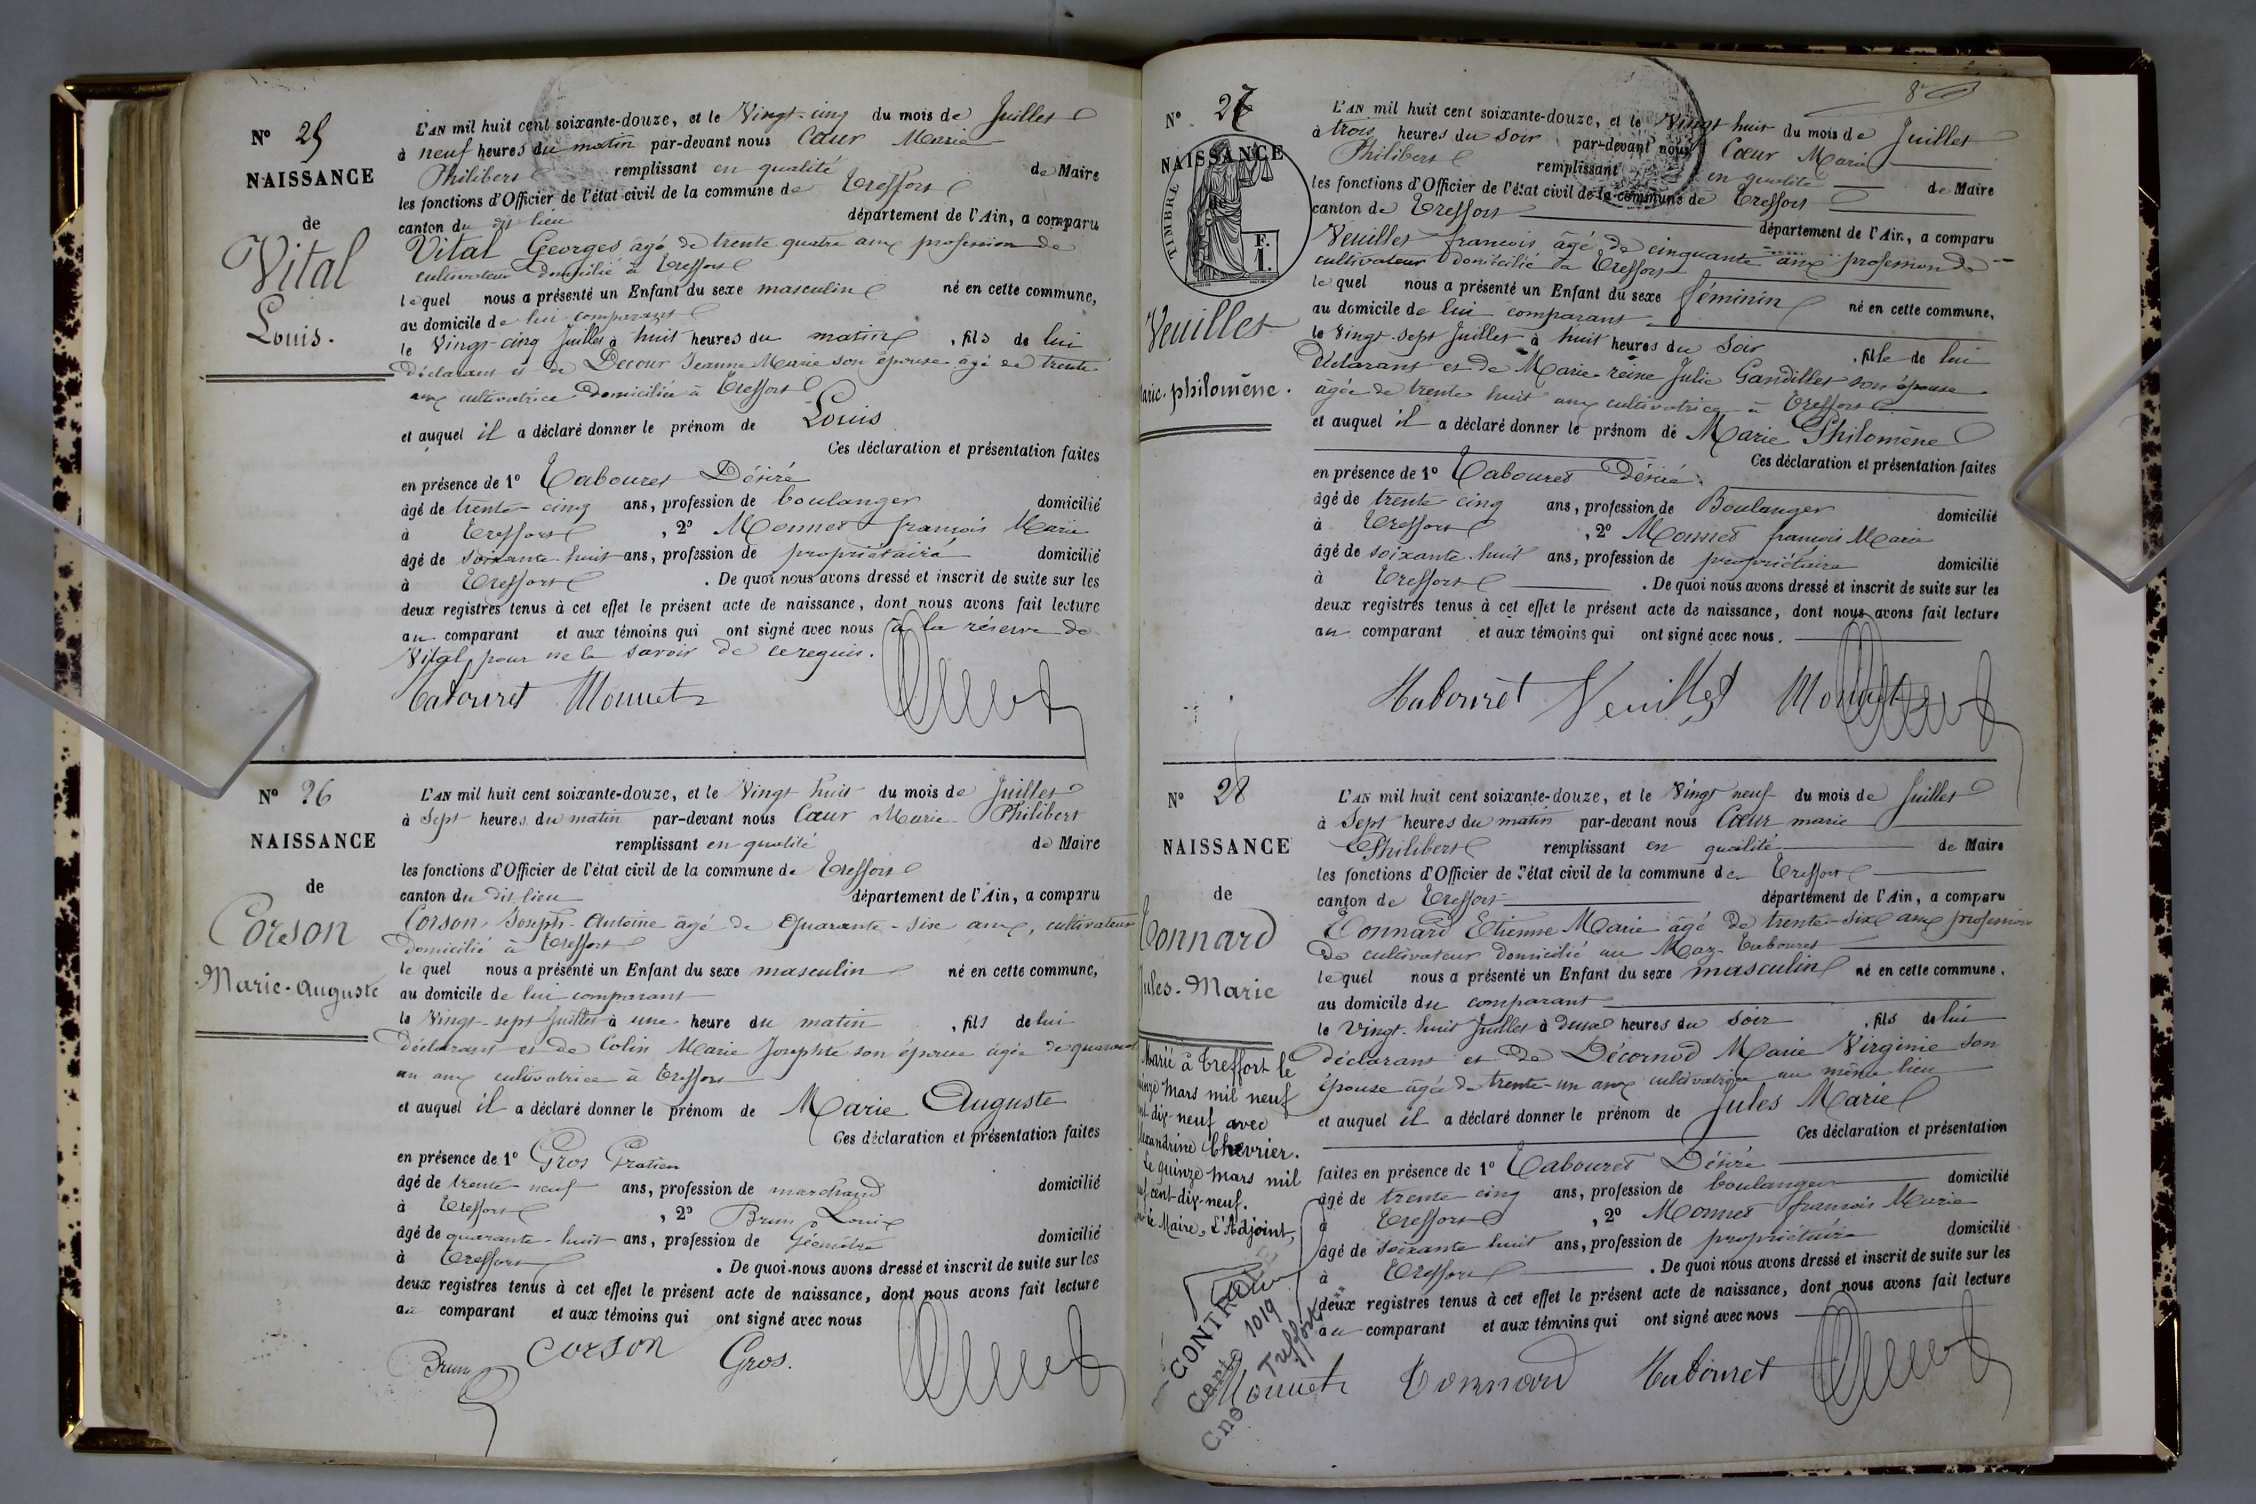 N° 25
NAISSANCE
de
Vital
Louis.
L'AN mil huit cent soixante-douze, et le Vingt-cinq du mois de Juillet
à neuf heures du matin par-devant nous Cœur Marie
Philibert remplissant en qualité de Maire
les fonctions d'Officier de l'état civil de la commune de Treffort
canton du dit lieu département de l'Ain, a comparu
Vital Georges âgé de trente quatre ans profession de
cultivateur domicilié à Treffort
lequel nous a présenté un Enfant du sexe masculin né en cette commune,
au domicile de lui comparant
le Vingt-cinq Juillet à huit heures du matin , fils de lui
déclarant et de Decour Jeanne Marie son épouse âgé de trente
ans cultivatrice domiciliée à Treffort
et auquel il a déclaré donner le prénom de Louis
Ces déclaration et présentation faites
en présence de 1° Tabouret Désiré
âgé de trente-cinq ans, profession de boulanger domicilié
à Treffort , 2° Monnet françois Marie
âgé de soixante-huit ans, profession de propriétaire domicilié
à Treffort . De quoi nous avons dressé et inscrit de suite sur les
deux registres tenus à cet effet le présent acte de naissance, dont nous avons fait lecture
au comparant et aux témoins qui ont signé avec nous à la réserve de
Vital pour ne le savoir de ce requis.
Tabouret Monnet
N° 26
NAISSANCE
de
Corson
Marie-Auguste
L'AN mil huit cent soixante-douze, et le Vingt huit du mois de Juillet
à Sept heures du matin par-devant nous Cœur Marie Philibert
remplissant en qualité de Maire
les fonctions d'Officier de l'état civil de la commune de Treffort
canton du dit lieu département de l'Ain, a comparu
Corson Joseph-Antoine âgé de Quarante-six ans, cultivateur
domicilié à Treffort
lequel nous a présenté un Enfant du sexe masculin né en cette commune,
au domicile de lui comparant
le Vingt-sept Juillet à une heure du matin , fils de lui
déclarant et de Colin Marie Josephte son épouse âgée de quarante
un ans cultivatrice à Treffort
et auquel il a déclaré donner le prénom de Marie Auguste
Ces déclaration et présentation faites
en présence de 1° Gros Gratien
âgé de trente-neuf ans, profession de marchand domicilié
à Treffort , 2° Brun Louis
âgé de quarante-huit ans, profession de Géomètre domicilié
à Treffort . De quoi nous avons dressé et inscrit de suite sur les
deux registres tenus à cet effet le présent acte de naissance, dont nous avons fait lecture
au comparant et aux témoins qui ont signé avec nous
Brun Corson Gros.
N° 27
NAISSANCE
TIMBRE
F.
1.
Veuillet
Marie-philomène.
L'AN mil huit cent soixante-douze, et le Vingt huit du mois de Juillet
à trois heures du soir par-devant nous Cœur Marie
Philibert remplissant en qualité de Maire
les fonctions d'Officier de l'état civil de la commune de Treffort
canton de Treffort département de l'Ain, a comparu
Veuillet francois âgé de cinquante ans profession de
cultivateur domicilié à Treffort
lequel nous a présenté un Enfant du sexe féminin né en cette commune,
au domicile de lui comparant
le Vingt-sept Juillet à huit heures du Soir , fille de lui
Déclarant et de Marie-reine Julie Gandillet son épouse
âgée de trente huit ans cultivatrice à Treffort
et auquel il a déclaré donner le prénom de Marie Philomène
Ces déclaration et présentation faites
en présence de 1° Tabouret Désiré
âgé de trente cinq ans, profession de Boulanger domicilié
à Treffort , 2° Monnet françois Marie
âgé de soixante-huit ans, profession de propriétaire domicilié
à Treffort . De quoi nous avons dressé et inscrit de suite sur les
deux registres tenus à cet effet le présent acte de naissance, dont nous avons fait lecture
au comparant et aux témoins qui ont signé avec nous.
Tabouret Veuillet Monnet
N° 28
NAISSANCE
de
Tonnard
Jules-Marie
Marié à Treffort le
quinze Mars mil neuf
cent dix-neuf avec
Alexandrine Chevrier.
Le quinze Mars mil
neuf cent-dix-neuf.
le Maire, L'Adjoint,
CONTRÔLE
1019
Cno Treffort
L'AN mil huit cent soixante-douze, et le Vingt neuf du mois de Juillet
à Sept heures du matin par-devant nous Cœur marie
Philibert remplissant en qualité de Maire
les fonctions d'Officier de l'état civil de la commune de Treffort
canton de Treffort département de l'Ain, a comparu
Tonnard Etienne Marie âgé de trente-six ans profession
de cultivateur domicilié au Maz-Tabouret
lequel nous a présenté un Enfant du sexe masculin né en cette commune,
au domicile du comparant
le Vingt-huit Juillet à deux heures du soir , fils de lui
déclarant et de Décornod Marie Virginie son
épouse âgée de trente-un ans cultivatrice au même lieu
et auquel il a déclaré donner le prénom de Jules Marie
Ces déclaration et présentation
faites en présence de 1° Tabouret Désiré
âgé de trente cinq ans, profession de boulanger domicilié
à Treffort , 2° Monnet françois Marie
âgé de soixante huit ans, profession de propriétaire domicilié
à Treffort . De quoi nous avons dressé et inscrit de suite sur les
deux registres tenus à cet effet le présent acte de naissance, dont nous avons fait lecture
au comparant et aux témoins qui ont signé avec nous
Monnet Tonnard Tabouret